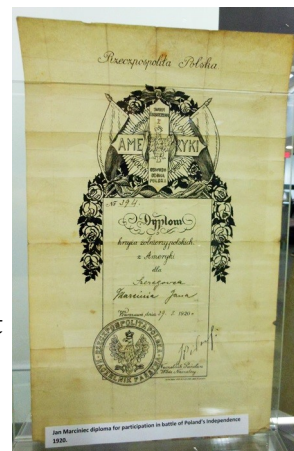 Rzeczpospolita Polska
AMERYKI
№ 394
Dyplom
krzyża żołnierzy polskich
z Ameryki
dla
Szeregowca
Marcinica Jana
Warszawa dnia 1920 r.
RZECZPOSPOLITA POLSKA
NACZELNIK PAŃSTWA
Jan Marciniec diploma for participation in battle of Poland's independence
1920.